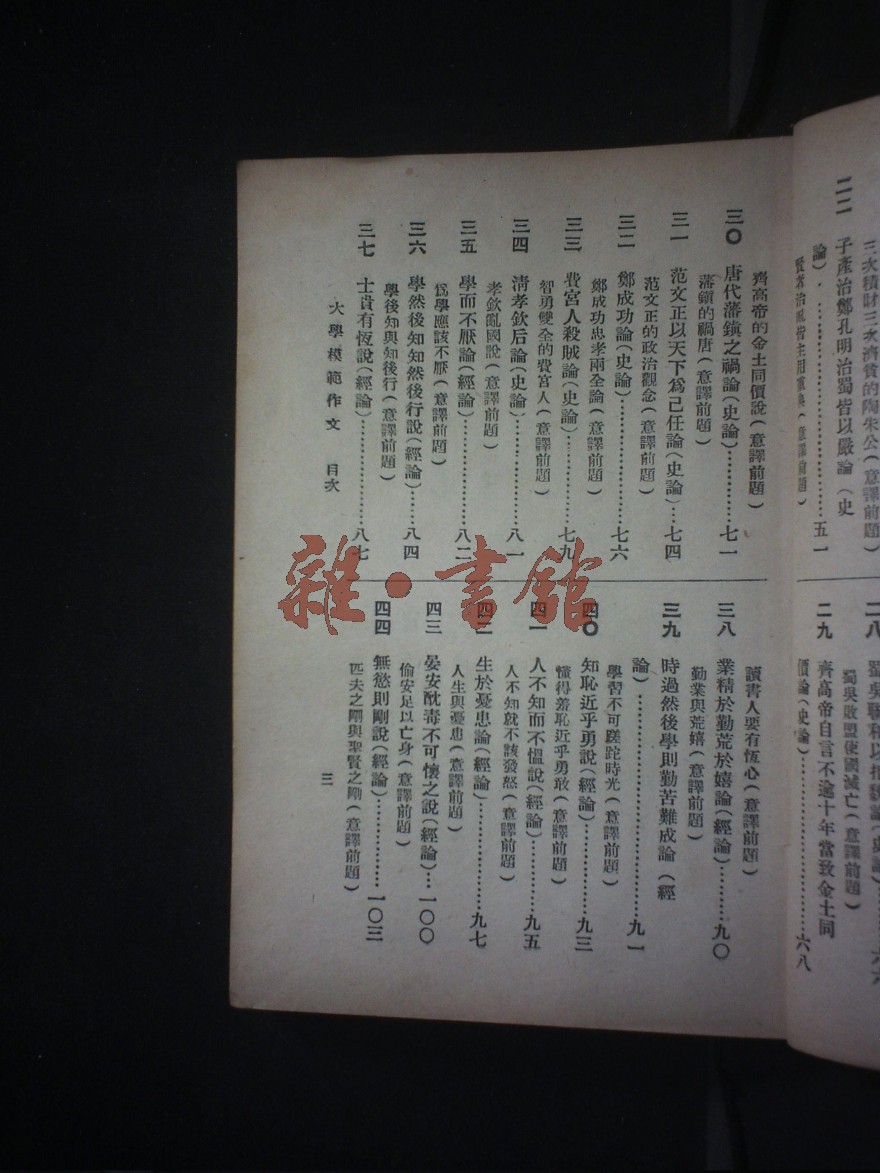 三次積財三次濟貧的陶朱公(意譯前題)
二二 子產治鄭孔明治蜀皆以嚴論(史
論)………………五一
二八
蜀吳敗盟使國滅亡(意譯前題)
二九 齊高帝自言不逾十年當致金土同
價論(史論)………………六八
齊高帝的金土同價說(意譯前題)
三〇 唐代藩鎮之禍論(史論)………七一
藩鎮的禍唐(意譯前題)
三一 范文正以天下爲己任論(史論)…七四
范文正的政治觀念(意譯前題)
三二 鄭成功論(史論)………………七六
鄭成功忠孝兩全論(意譯前題)
三三 費宮人殺賊論(史論)…………七九
智勇雙全的費宮人(意譯前題)
三四 清孝欽后論(史論)……………八一
孝欽亂國說(意譯前題)
三五 學而不厭論(經論)……………八二
爲學應該不厭(意譯前題)
三六 學然後知知然後行說(經論)……八四
學後知與知後行(意譯前題)
三七 士貴有恆說(經論)……………八七
讀書人要有恆心(意譯前題)
三八 業精於勤荒於嬉論(經論)………九〇
勤業與荒嬉(意譯前題)
三九 時過然後學則勤苦難成論(經
論)………………九一
學習不可蹉跎時光(意譯前題)
四〇 知恥近乎勇說(經論)…………九三
懂得羞恥近乎勇敢(意譯前題)
四一 人不知而不慍說(經論)………九五
人不知就不該發怒(意譯前題)
四二 生於憂患論(經論)……………九七
人生與憂患(意譯前題)
四三 晏安酖毒不可懷之說(經論)…一〇〇
偷安足以亡身(意譯前題)
四四 無慾則剛說(經論)……………一〇三
匹夫之剛與聖賢之剛(意譯前題)
大學模範作文 目次
三
雜·書館